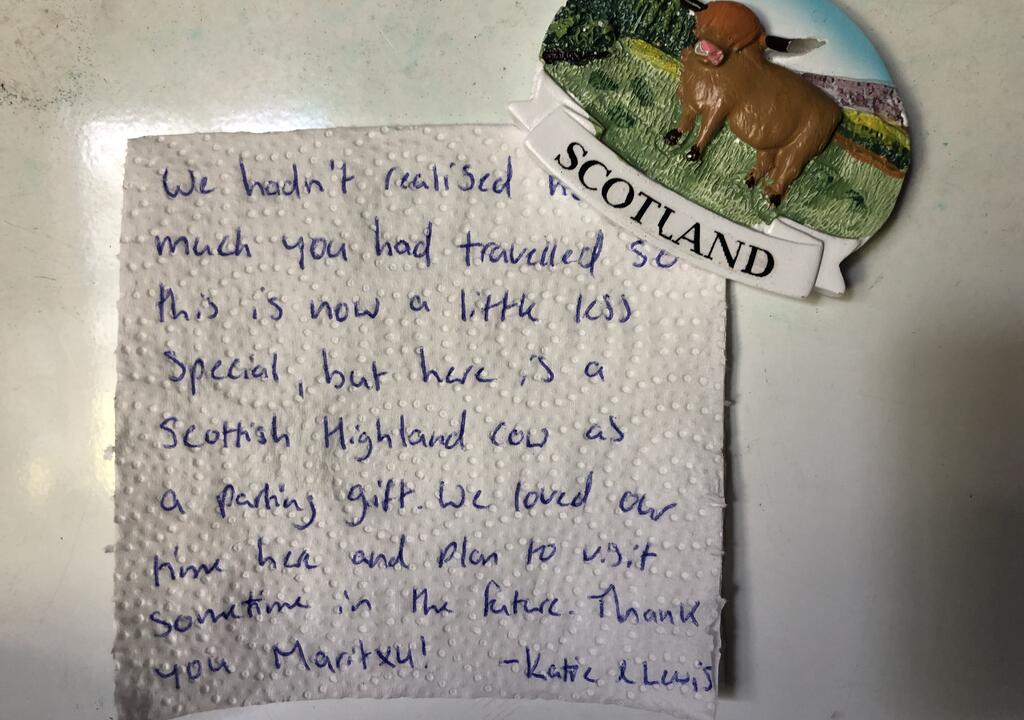 SCOTLAND
We hadn't realised
much you had travelled so
this is now a little less
special, but here is a
Scottish Highland cow as
a parting gift. We loved our
time here and plan to visit
sometime in the future. Thank
you Maritxu! - Katie & Lewis